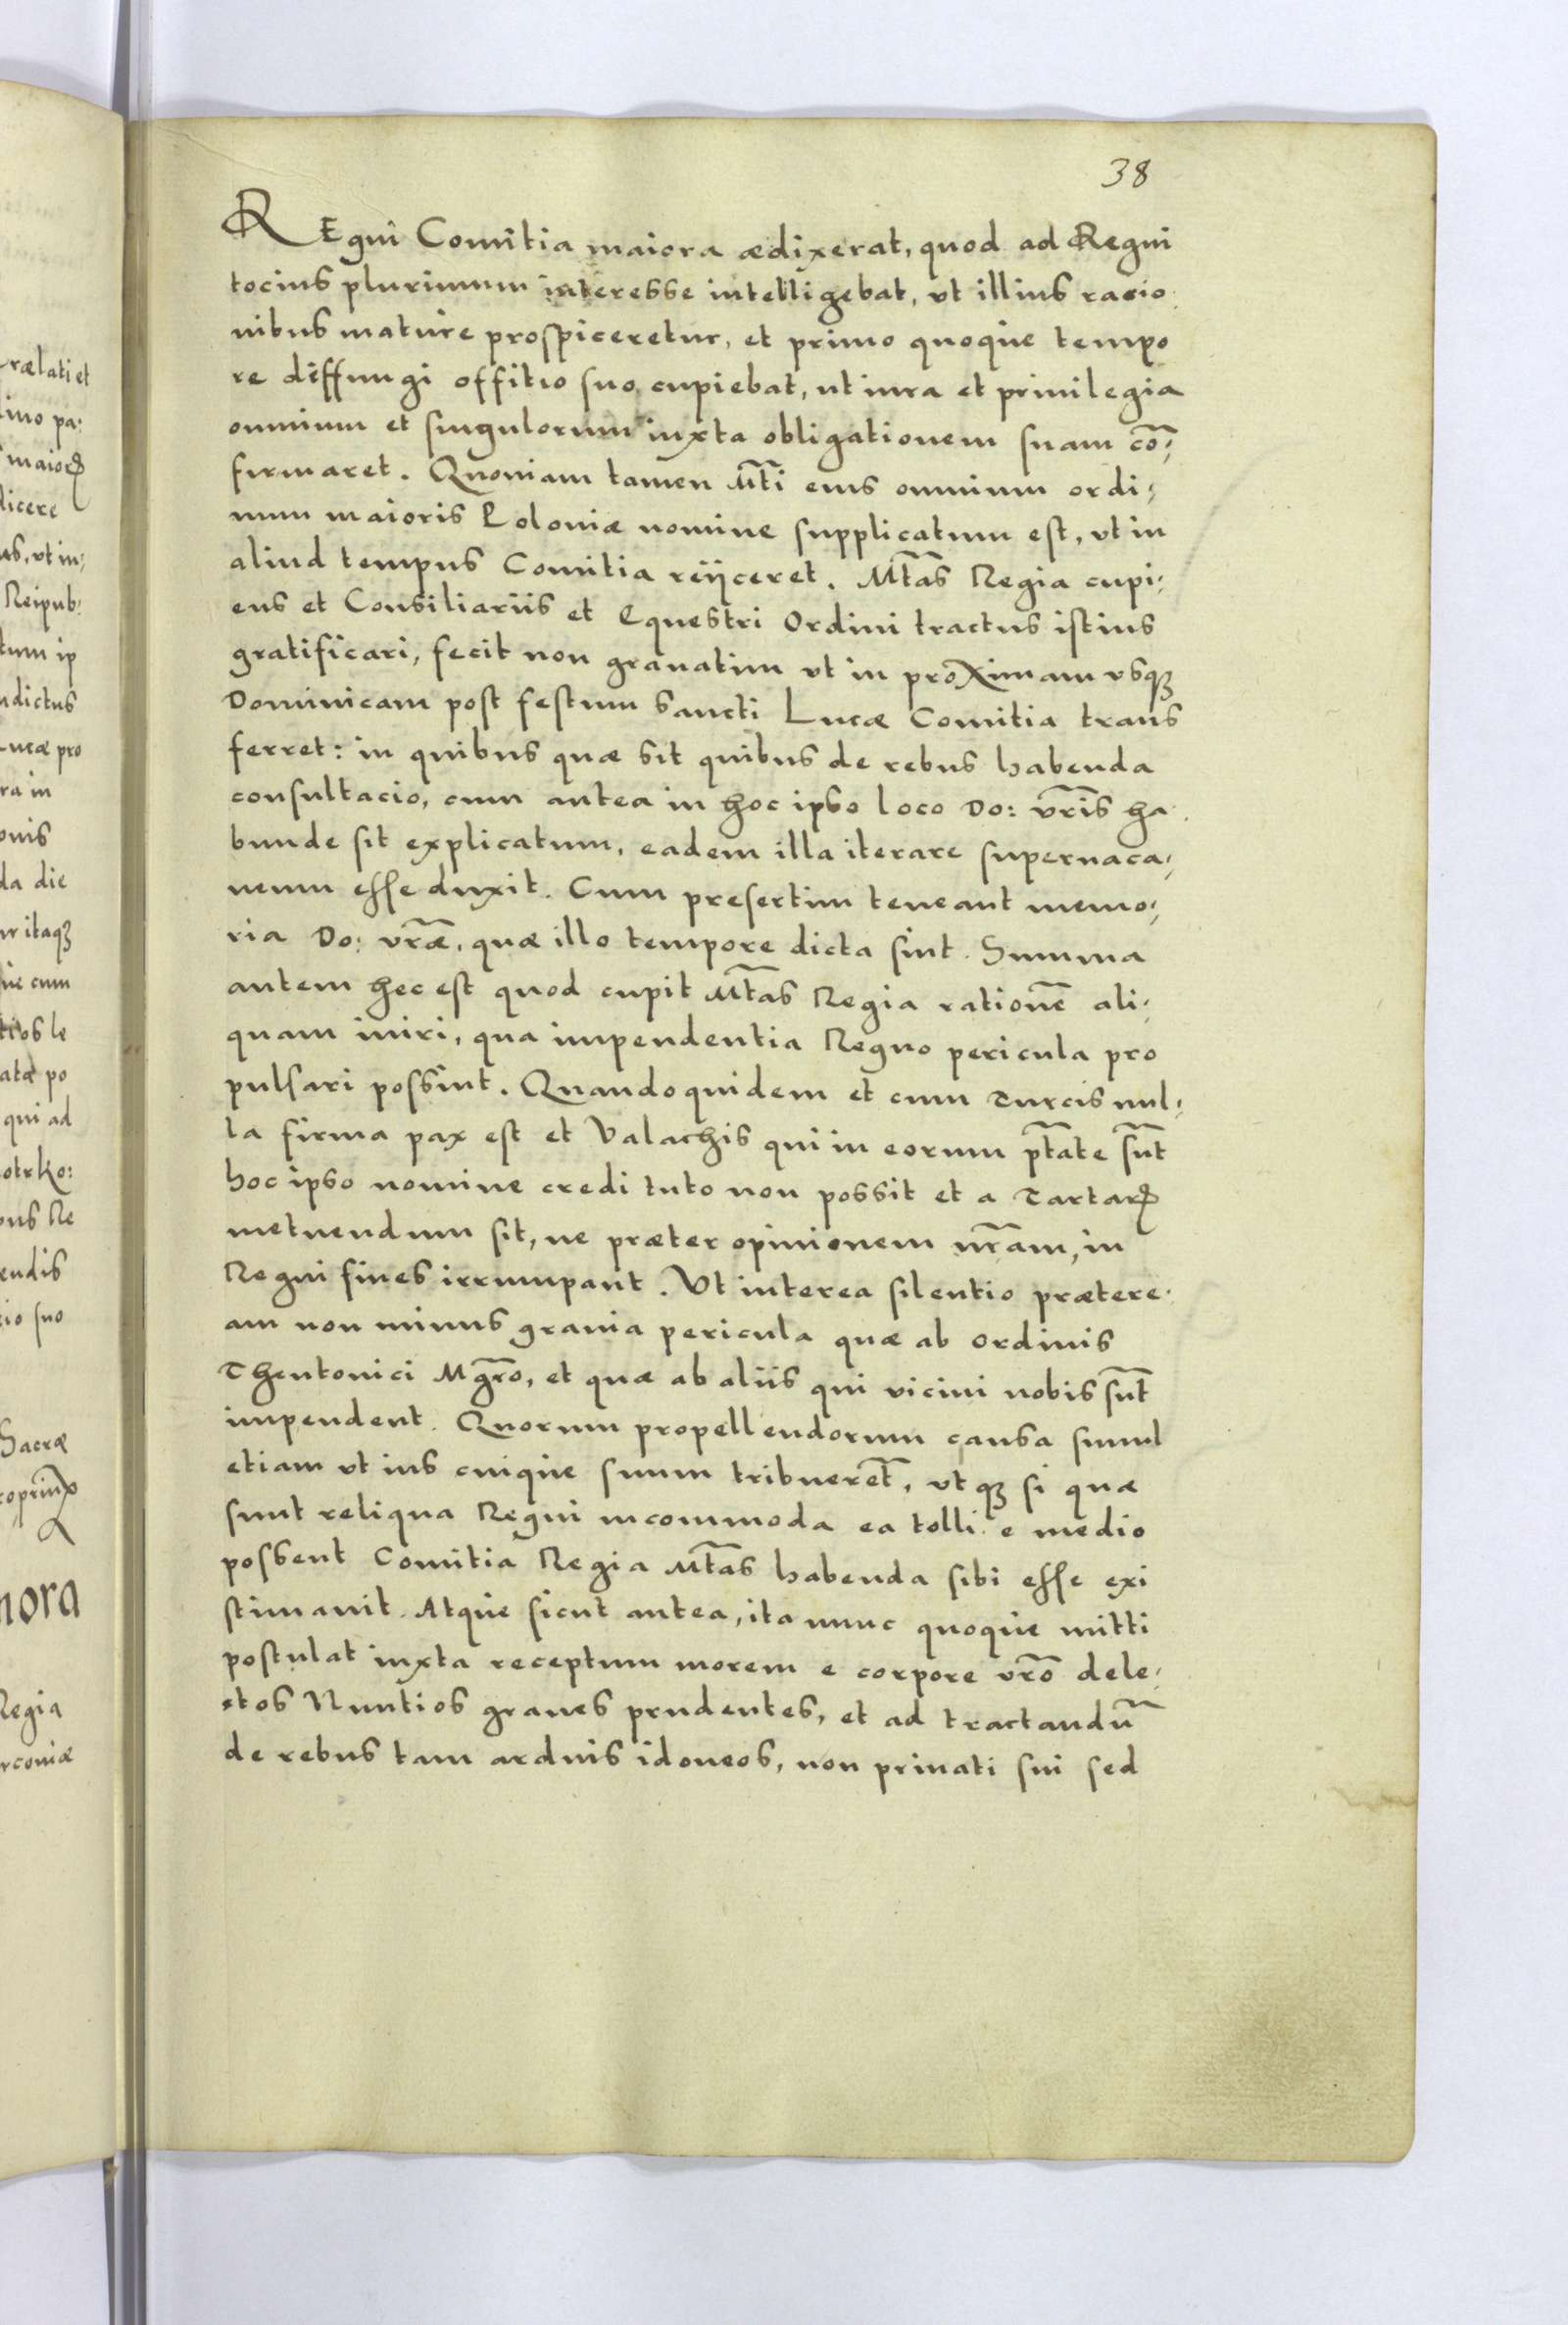 38
REgni Comitia maiora ædixerat, quod ad Regni
tocius plurimum interesse intelligebat, vt illius racio
nibus mature prospiceretur, et primo quoque tempo
re diffungi offitio suo cupiebat, ut iura et priuilegia
omnium et singulorum iuxta obligationem suam cō¸
firmaret. Quoniam tamen Mt̄i eius omnium ordi¸
num maioris Poloniæ nomine supplicatum est, vt in
aliud tempus Comitia reijceret. Mt̄as Regia cupi¸
ens et Consiliariis et Equestri Ordini tractus istius
gratificari, fecit non grauatim vt in proximam vsqȝ
Dominicam post festum Sancti Lucæ Comitia trans
ferret: in quibus quæ sit quibus de rebus habenda
consultacio, cum antea in hoc ipso loco Do: vr̄is ha
bunde sit explicatum, eadem illa iterare superuaca¸
neum esse duxit. Cum presertim teneant memo¸
ria Do: vr̄æ, quæ illo tempore dicta sint. Summa
autem hec est quod cupit Mt̄as Regia rationē ali¸
quam iniri, qua impendentia Regno pericula pro
pulsari possint. Quandoquidem et cum Turcis nul¸
la firma pax est et Valachis qui in eorum pt̄ate sūt
hoc ipso nomine credi tuto non possit et a Tartarꝭ
metuendum sit, ne præter opinionem nr̄am, in
Regni fines irrumpant. Vt interea silentio prætere
am non minus grauia pericula quæ ab ordinis
Theutonici Mgr̄o, et quæ ab aliis qui vicini nobis sūt
impendent. Quorum propellendorum causa simul
etiam vt ius cuique suum tribueret̄, vt qȝ si quæ
sunt reliqua Regni incommoda ea tolli e medio
possent Comitia Regia Mt̄as habenda sibi esse exi
stimauit. Atque sicut antea, ita nunc quoque mitti
postulat iuxta receptum morem e corpore vr̄o dele¸
ctos Nuntios graues prudentes, et ad tractandū
de rebus tam arduis idoneos, non priuati sui sed
rælati et
maiorꝭ
dicere
vt in¸
Reipub:
tum ip
dictus
ucæ pro
ra in
onis
da die
itaqȝ
cum
os le
atæ po
qui ad
otrko:
Re
endis
io suo
Sacræ
Regia